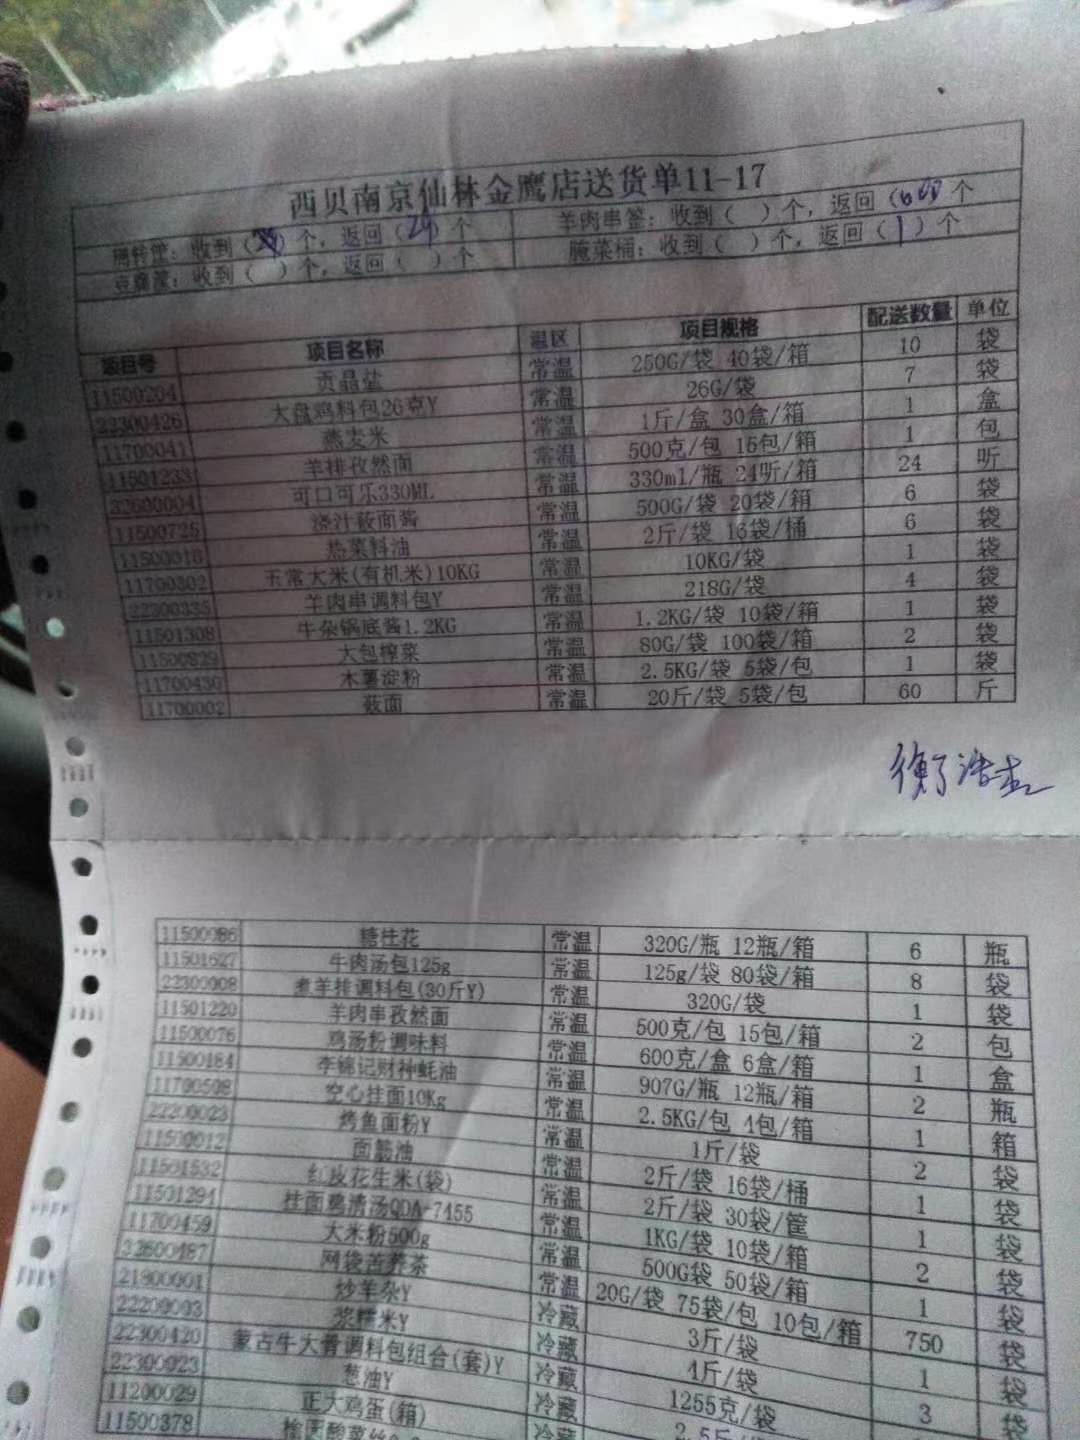 西贝南京仙林金鹰店送货单11-17
周转筐：收到（ ）个，返回（24）个 羊肉串签：收到（ ）个，返回（600）个
收到（ ）个，返回（ ）个 腌菜桶：收到（ ）个，返回（1）个
项目号 项目名称 温区 项目规格 配送数量 单位
11500204 贡晶盐 常温 250G/袋 40袋/箱 10 袋
22300426 大盘鸡料包26克Y 常温 26G/袋 7 袋
11700041 燕麦米 常温 1斤/盒 30盒/箱 1 盒
11501233 羊排孜然面 常温 500克/包 15包/箱 1 包
32600004 可口可乐330ML 常温 330ml/瓶 24听/箱 24 听
11500725 浇汁莜面酱 常温 500G/袋 20袋/箱 6 袋
11500016 热菜料油 常温 2斤/袋 16袋/桶 6 袋
11700302 五常大米(有机米)10KG 常温 10KG/袋 1 袋
22300335 羊肉串调料包Y 常温 218G/袋 4 袋
11501308 牛杂锅底酱1.2KG 常温 1.2KG/袋 10袋/箱 1 袋
11500829 大包榨菜 常温 80G/袋 100袋/箱 2 袋
11700430 木薯淀粉 常温 2.5KG/袋 5袋/包 1 袋
11700002 莜面 常温 20斤/袋 5袋/包 60 斤
11500086 糖桂花 常温 320G/瓶 12瓶/箱 6 瓶
11501527 牛肉汤包125g 常温 125g/袋 80袋/箱 8 袋
22300008 煮羊排调料包(30斤Y) 常温 320G/袋 1 袋
11501220 羊肉串孜然面 常温 500克/包 15包/箱 2 包
11500076 鸡汤粉调味料 常温 600克/盒 6盒/箱 1 盒
11500184 李锦记财神蚝油 常温 907G/瓶 12瓶/箱 2 瓶
11700508 空心挂面10Kg 常温 2.5KG/包 4包/箱 1 箱
22200023 烤鱼面粉Y 常温 1斤/袋 2 袋
11500012 面筋油 常温 2斤/袋 16袋/桶 1 袋
11501532 红皮花生米(袋) 常温 2斤/袋 30袋/筐 1 袋
11501294 挂面鸡清汤QDA-7455 常温 1KG/袋 10袋/箱 2 袋
11700459 大米粉500g 常温 500G袋 50袋/箱 1 袋
32600487 网袋苦荞茶 常温 20G/袋 75袋/包 10包/箱 750 袋
21800001 炒羊杂Y 冷藏 3斤/袋 1 袋
22200093 浆糯米Y 冷藏 4斤/袋 3 袋
22300420 蒙古牛大骨调料包组合(套)Y 冷藏 1255克/袋
22300023 葱油Y 冷藏 2.5斤/袋
11200029 正大鸡蛋(箱) 冷藏
11500378